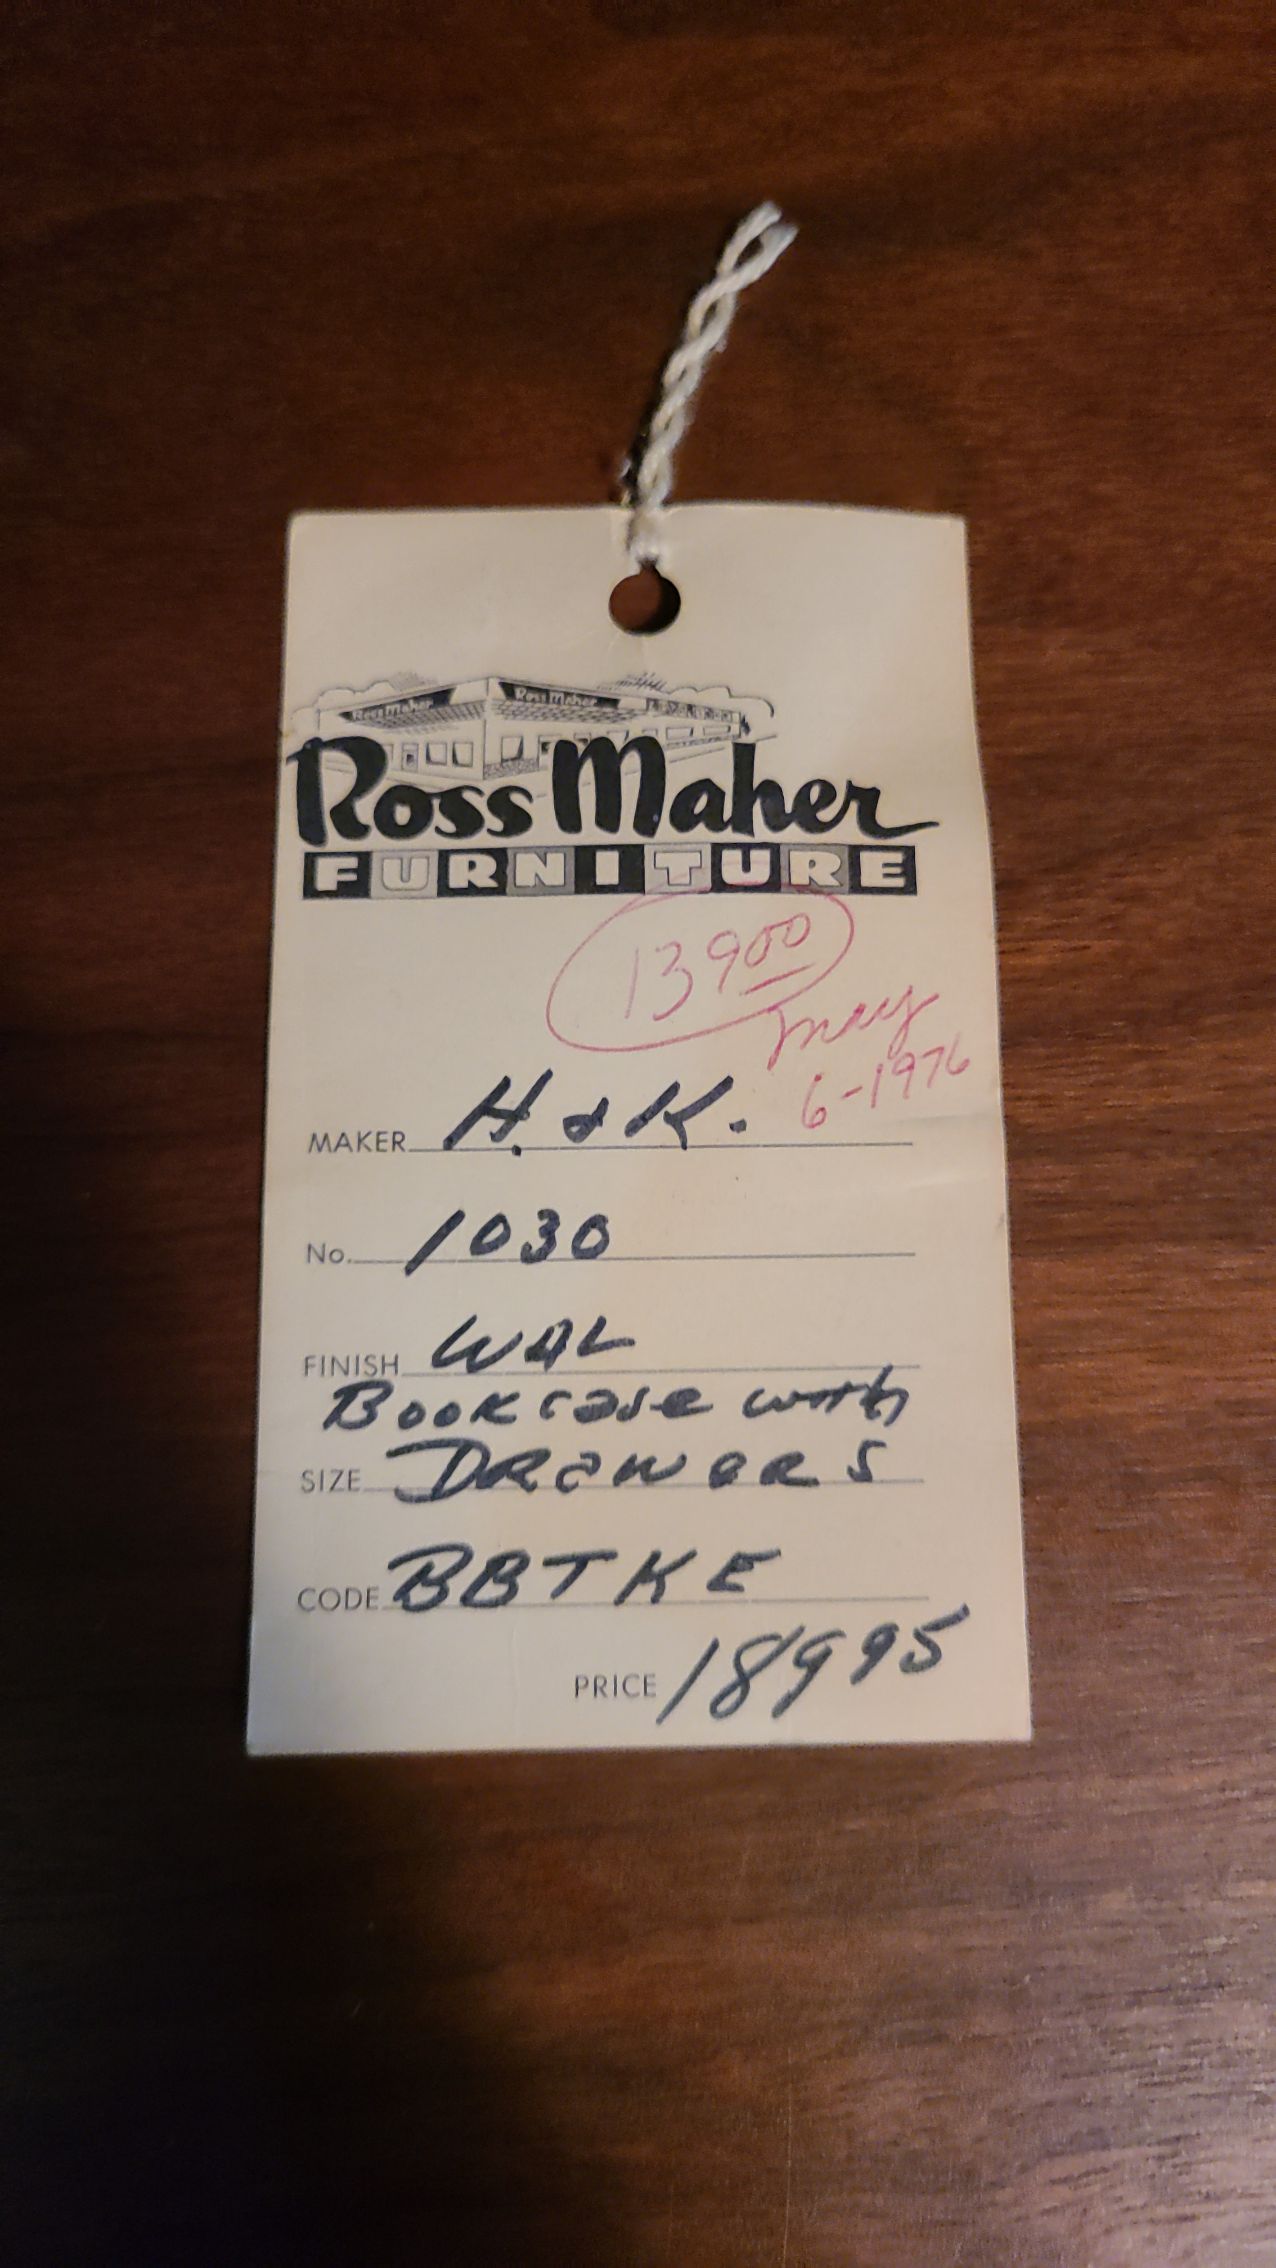 Ross Maher Ross Maher
Ross Maher
FURNITURE
13900
may
6-1976
MAKER H. & K.
No. 1030
FINISH WAL
Bookcase with
SIZE DRawers
CODE BBTKE
PRICE 18995